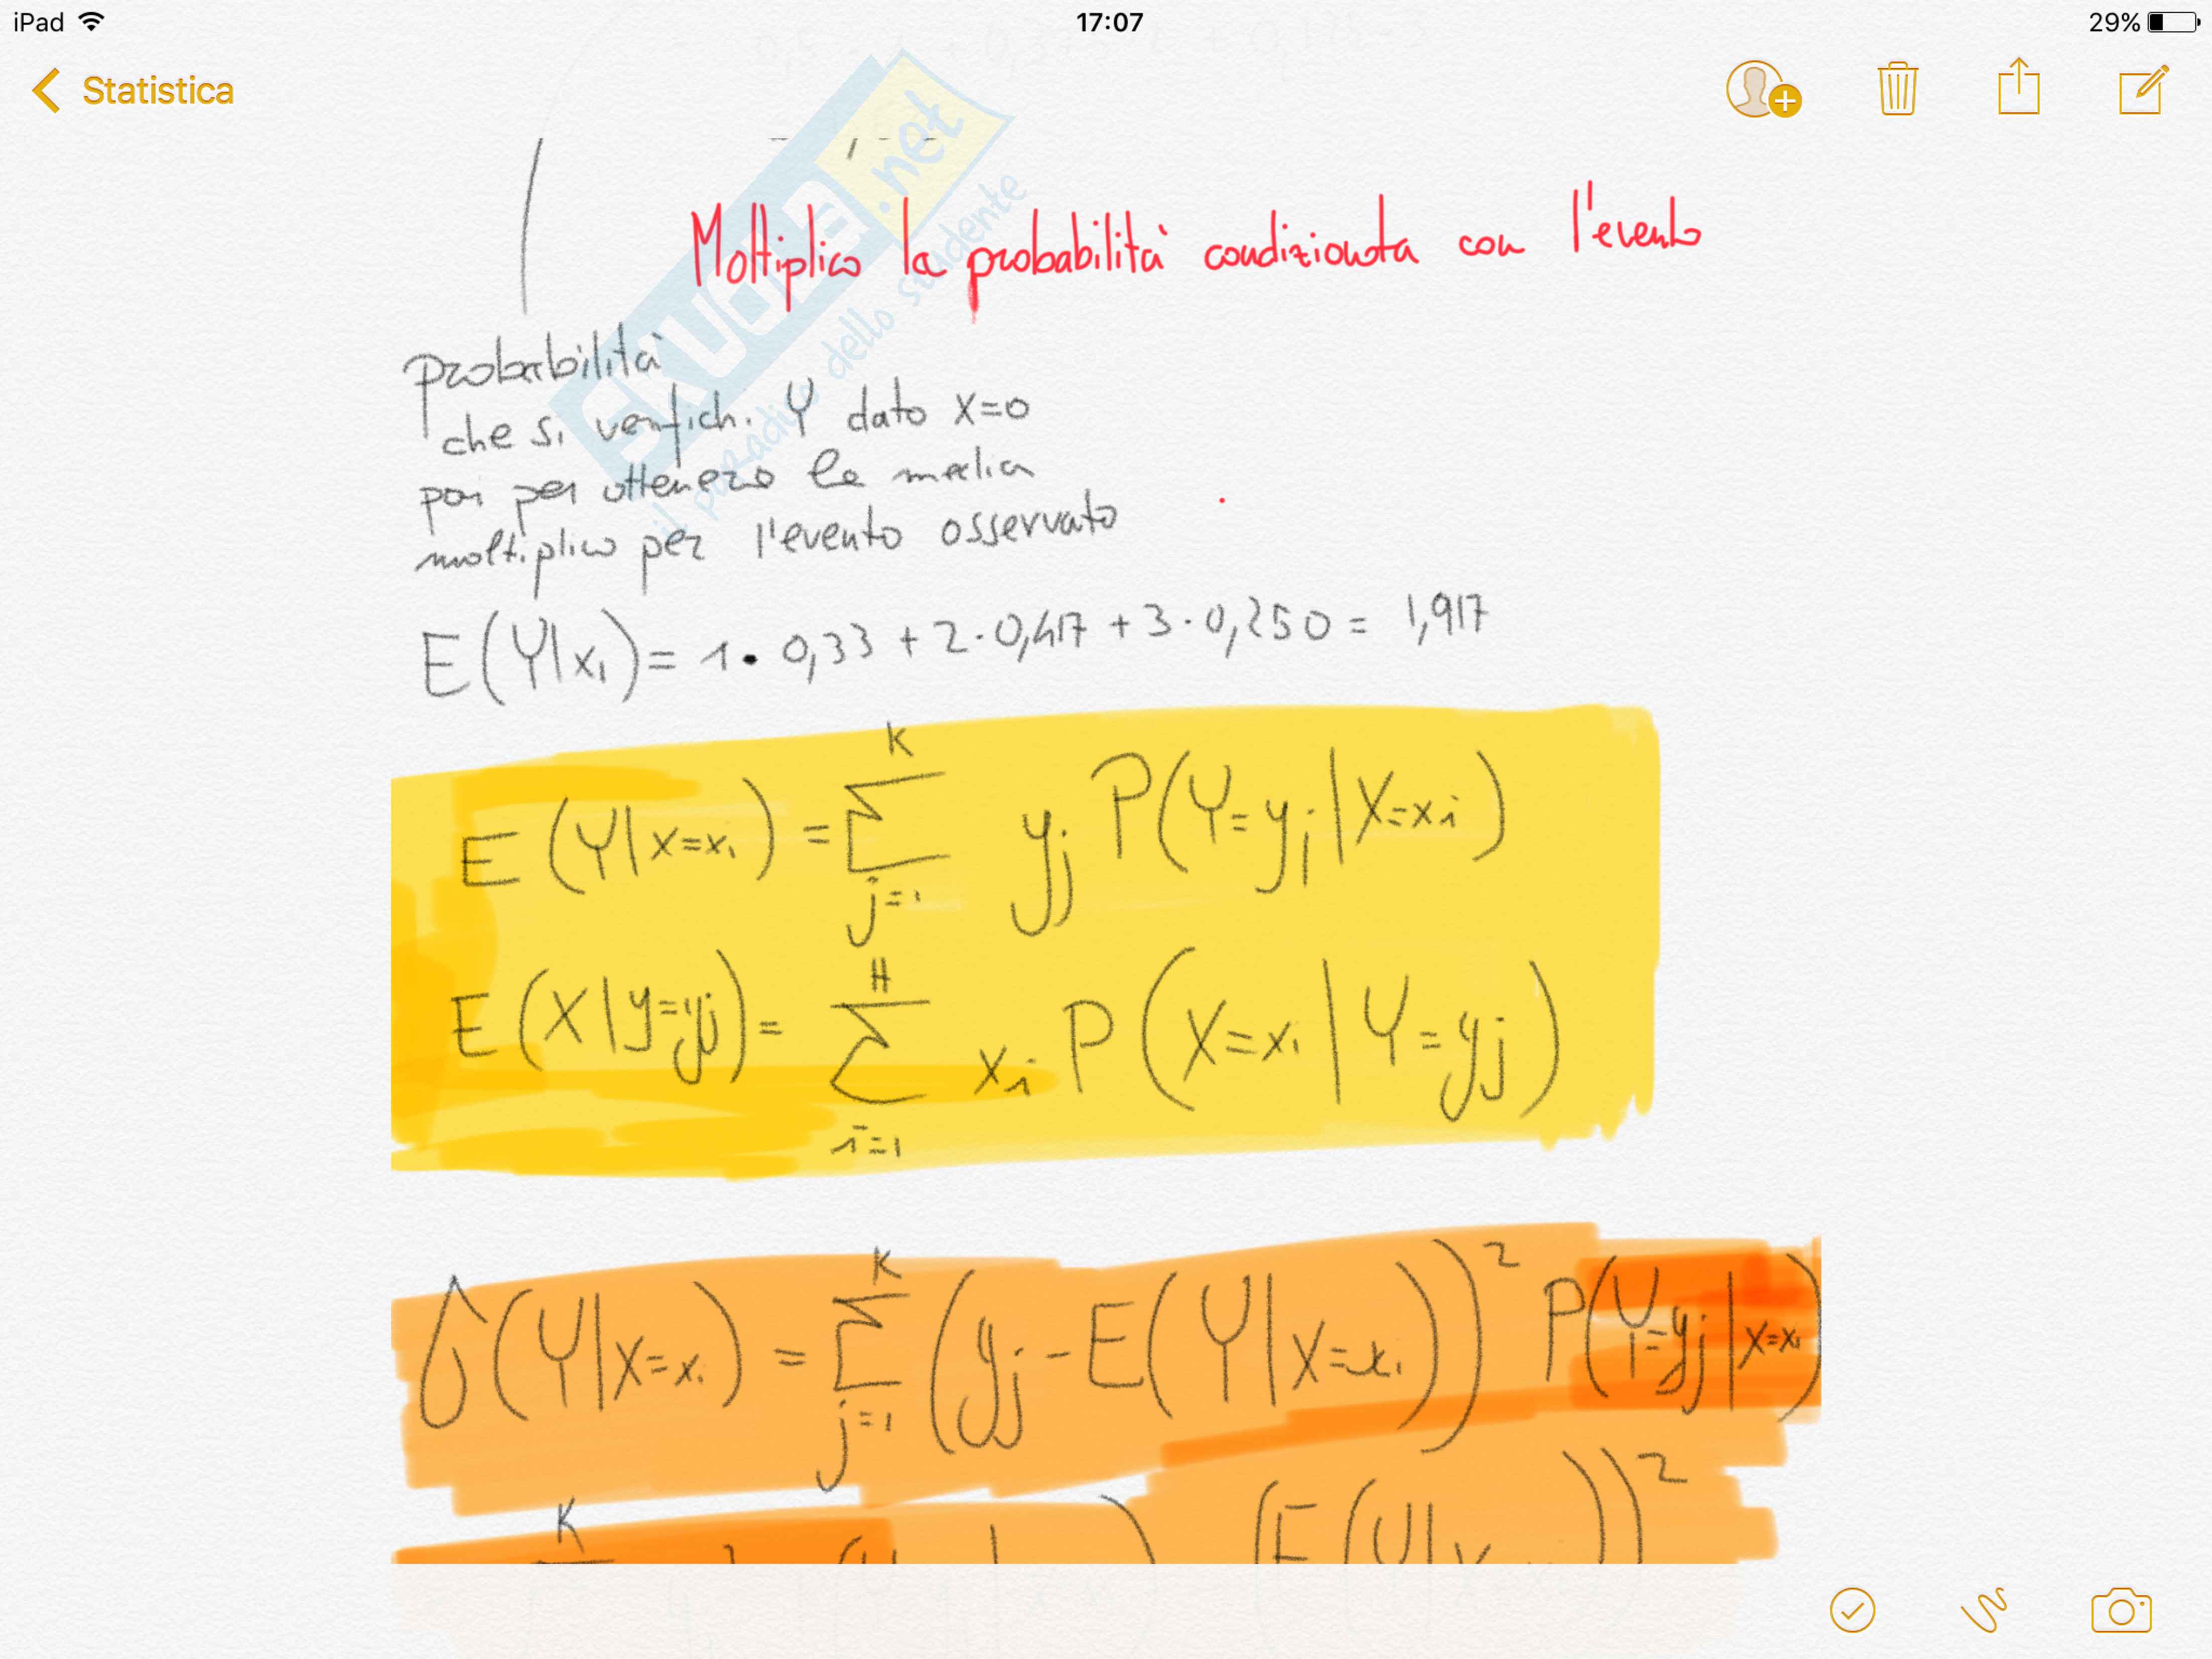 iPad
17:07
29%
Statistica
Moltiplico la probabilità condizionata con l'evento
probabilità
che si verfich. Y dato x=0
poi per ottenere la media
moltiplico per l'evento osservato
E(Y|x₁) = 1 · 0,33 + 2 · 0,417 + 3 · 0,250 = 1,917
E(Y|X=xᵢ) = Σ_{j=1}^{K} yⱼ P(Y=yⱼ|X=xᵢ)
E(X|y=yⱼ) = Σ_{i=1}^{H} xᵢ P(X=xᵢ|Y=yⱼ)
σ(Y|X=xᵢ) = Σ_{j=1}^{K} (yⱼ - E(Y|X=xᵢ))² P(Y=yⱼ|X=xᵢ)
K (E(Y| ))²
SKUOLA.net
il paradiso dello studente